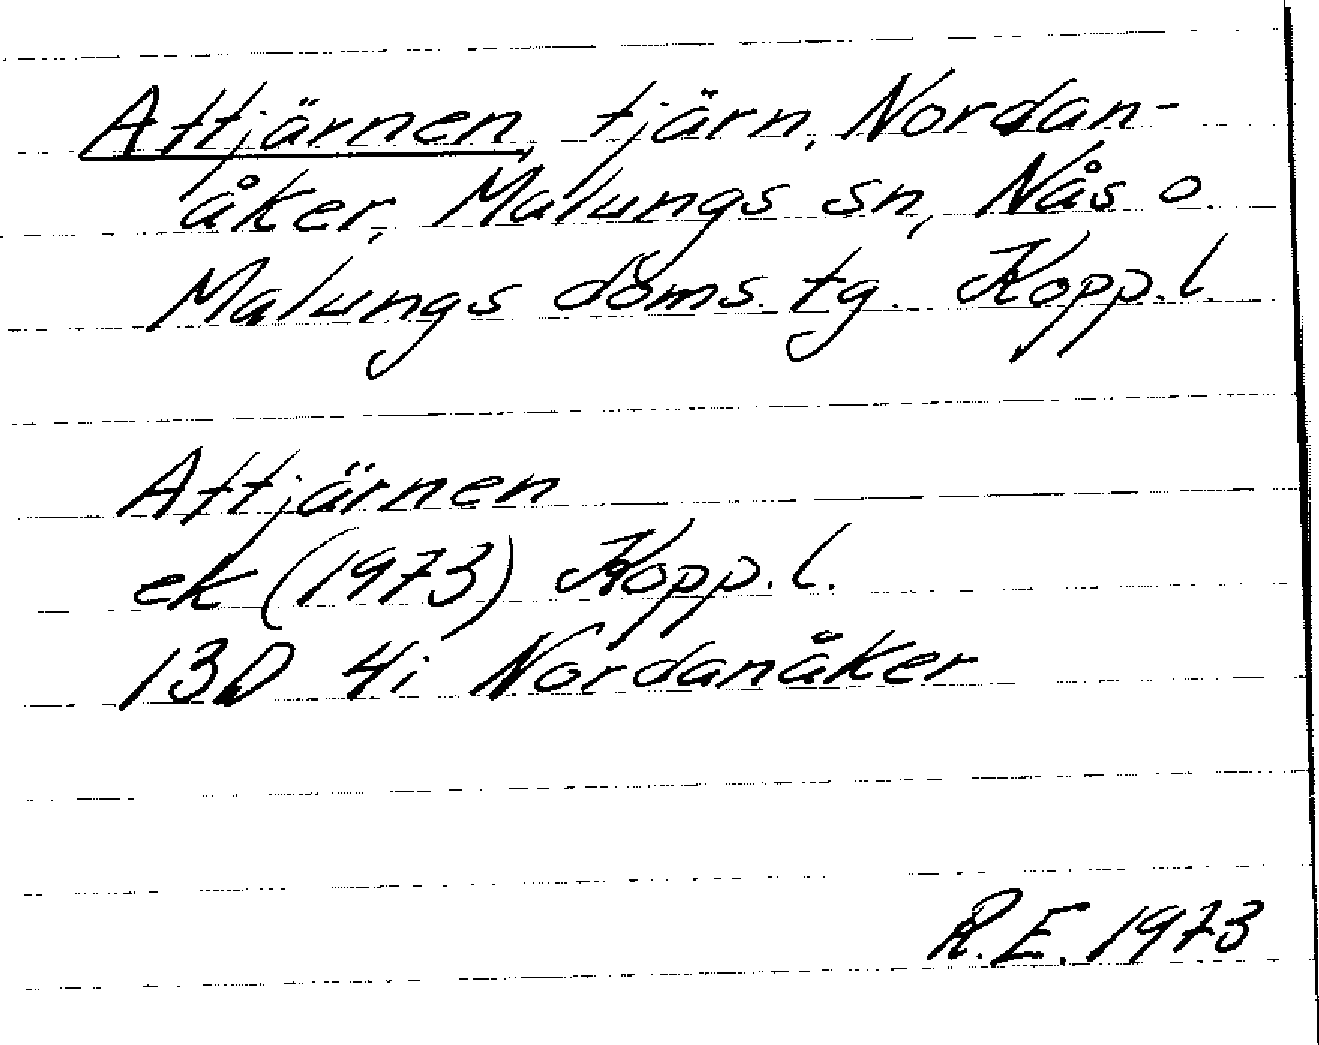 Attjärnen, tjärn, Nordan-
åker, Malungs sn, Nås o.
Malungs doms. tg. Kopp. l.
Attjärnen
ek (1973) Kopp. l.
13D 4i Nordanåker
R.E. 1973